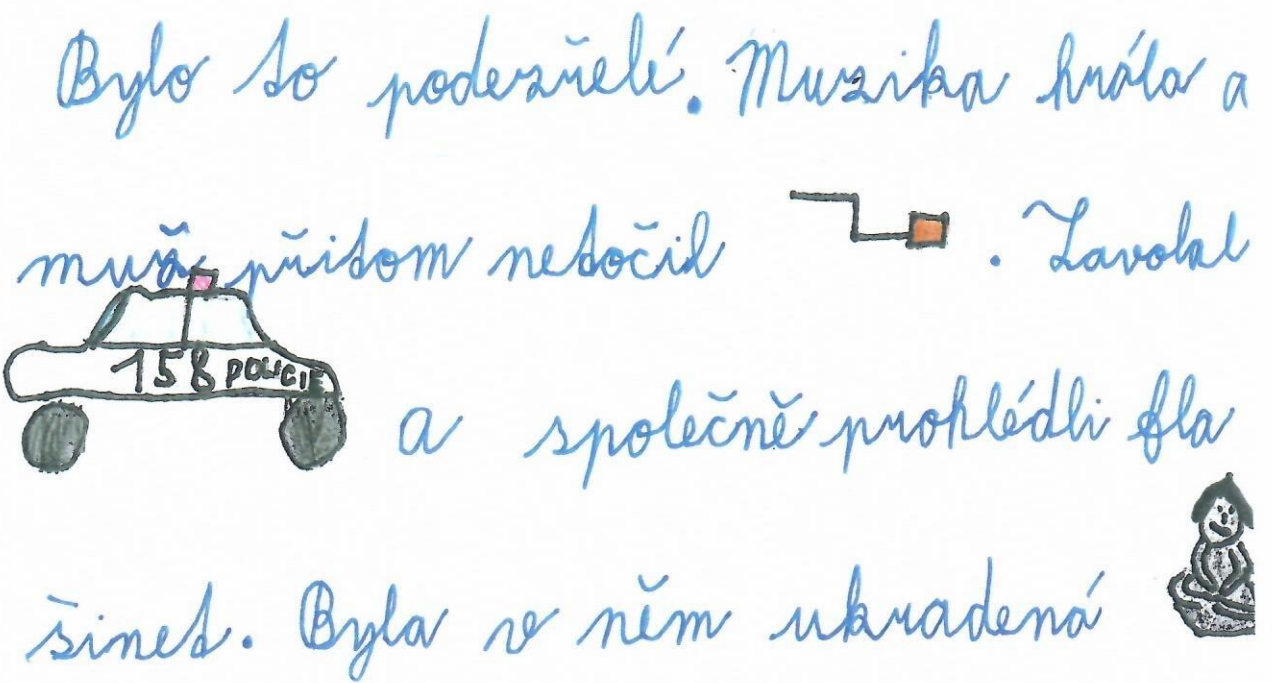 Bylo to podezřelé. Muzika hrála a
muž přitom netočil . Zavolal
158 POLICIE
a společně prohlédli fla
šinet. Byla v něm ukradená